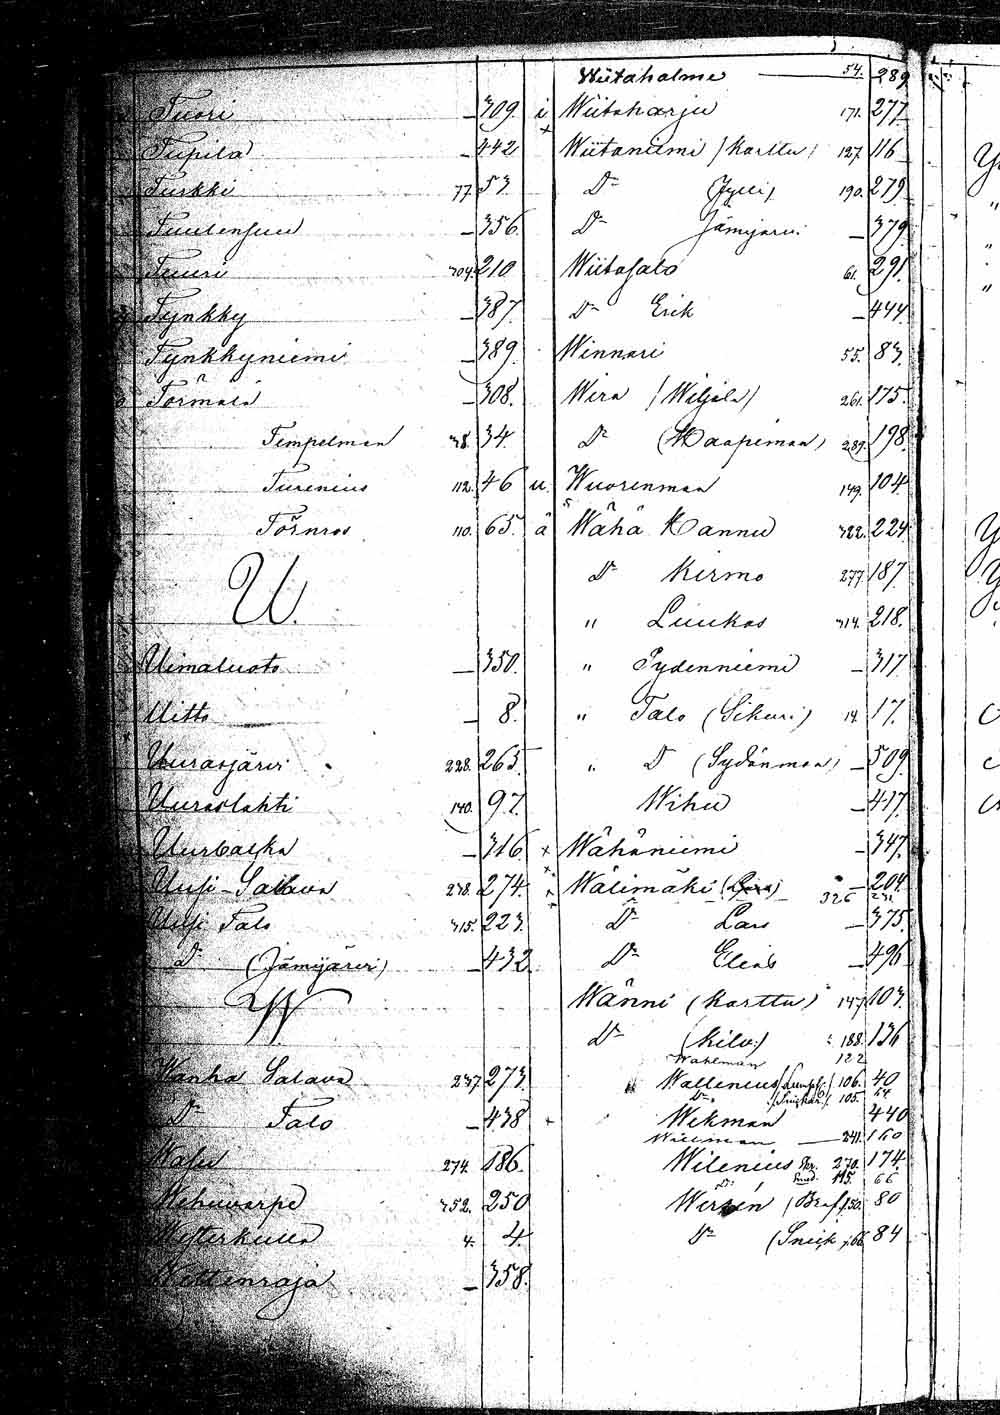 Tuori — 309.
Tupila — 442
Turkki 77. 53
Tuulensuu — 356.
Tuuri 304. 210
Tynkky — 387.
Tynkkyniemi — 389.
Törmälä — 308.
Tempelman 38. 34.
Turenius 112. 46
Törnros 110. 65.
U.
Uimaluoto — 350.
Uitto — 8.
Uurasjärvi 228. 265.
Uuraslahti 140. 97.
— 316
Uusi-Salava 238. 274.
Uusi Talo 315. 223.
D:o (Jämijärvi) — 432
W
Wanha Salava 237. 273.
D:o Talo — 438
Wasu 274. 186.
Wehuvarpe 352. 250
Westerkulla 4. 4.
Wettenraja — 358.
Wiitaholme — 54. 289
i Wiitaharju 171. 277.
Wiitaniemi (Karttu) 127. 116
D:o (Jylli) 190. 279
D:o Jämijärvi — 379.
Wiitasalo 61. 291.
D:o Erik — 444.
Winnari 55. 83.
Wira (Wiljala) 261. 175.
D:o (Haapiman) 289. 198.
u. Wuorenmaa 149. 104.
ä Wähä Hannu 322. 224
D:o Kirmo 277. 187.
" Luukas 314. 218.
" Pydenniemi — 317.
" Talo (Sikuri) 14. 17.
" D:o (Sydänmaa) — 509.
Wihu — 417.
+ Wähäniemi — 347.
Wälimäki 326 — 204.
D:o Lars — 375.
D:o Elias — 496
Wänni (Karttu) 147. 103.
D:o (Kilv.) 188. 136
Wahlman 122
Wallenius 106. 40
D:o 105. 54
Wekman 440
241. 160
Wilenius 270. 174.
115. 66
Wersén 150. 80
D:o 166. 84